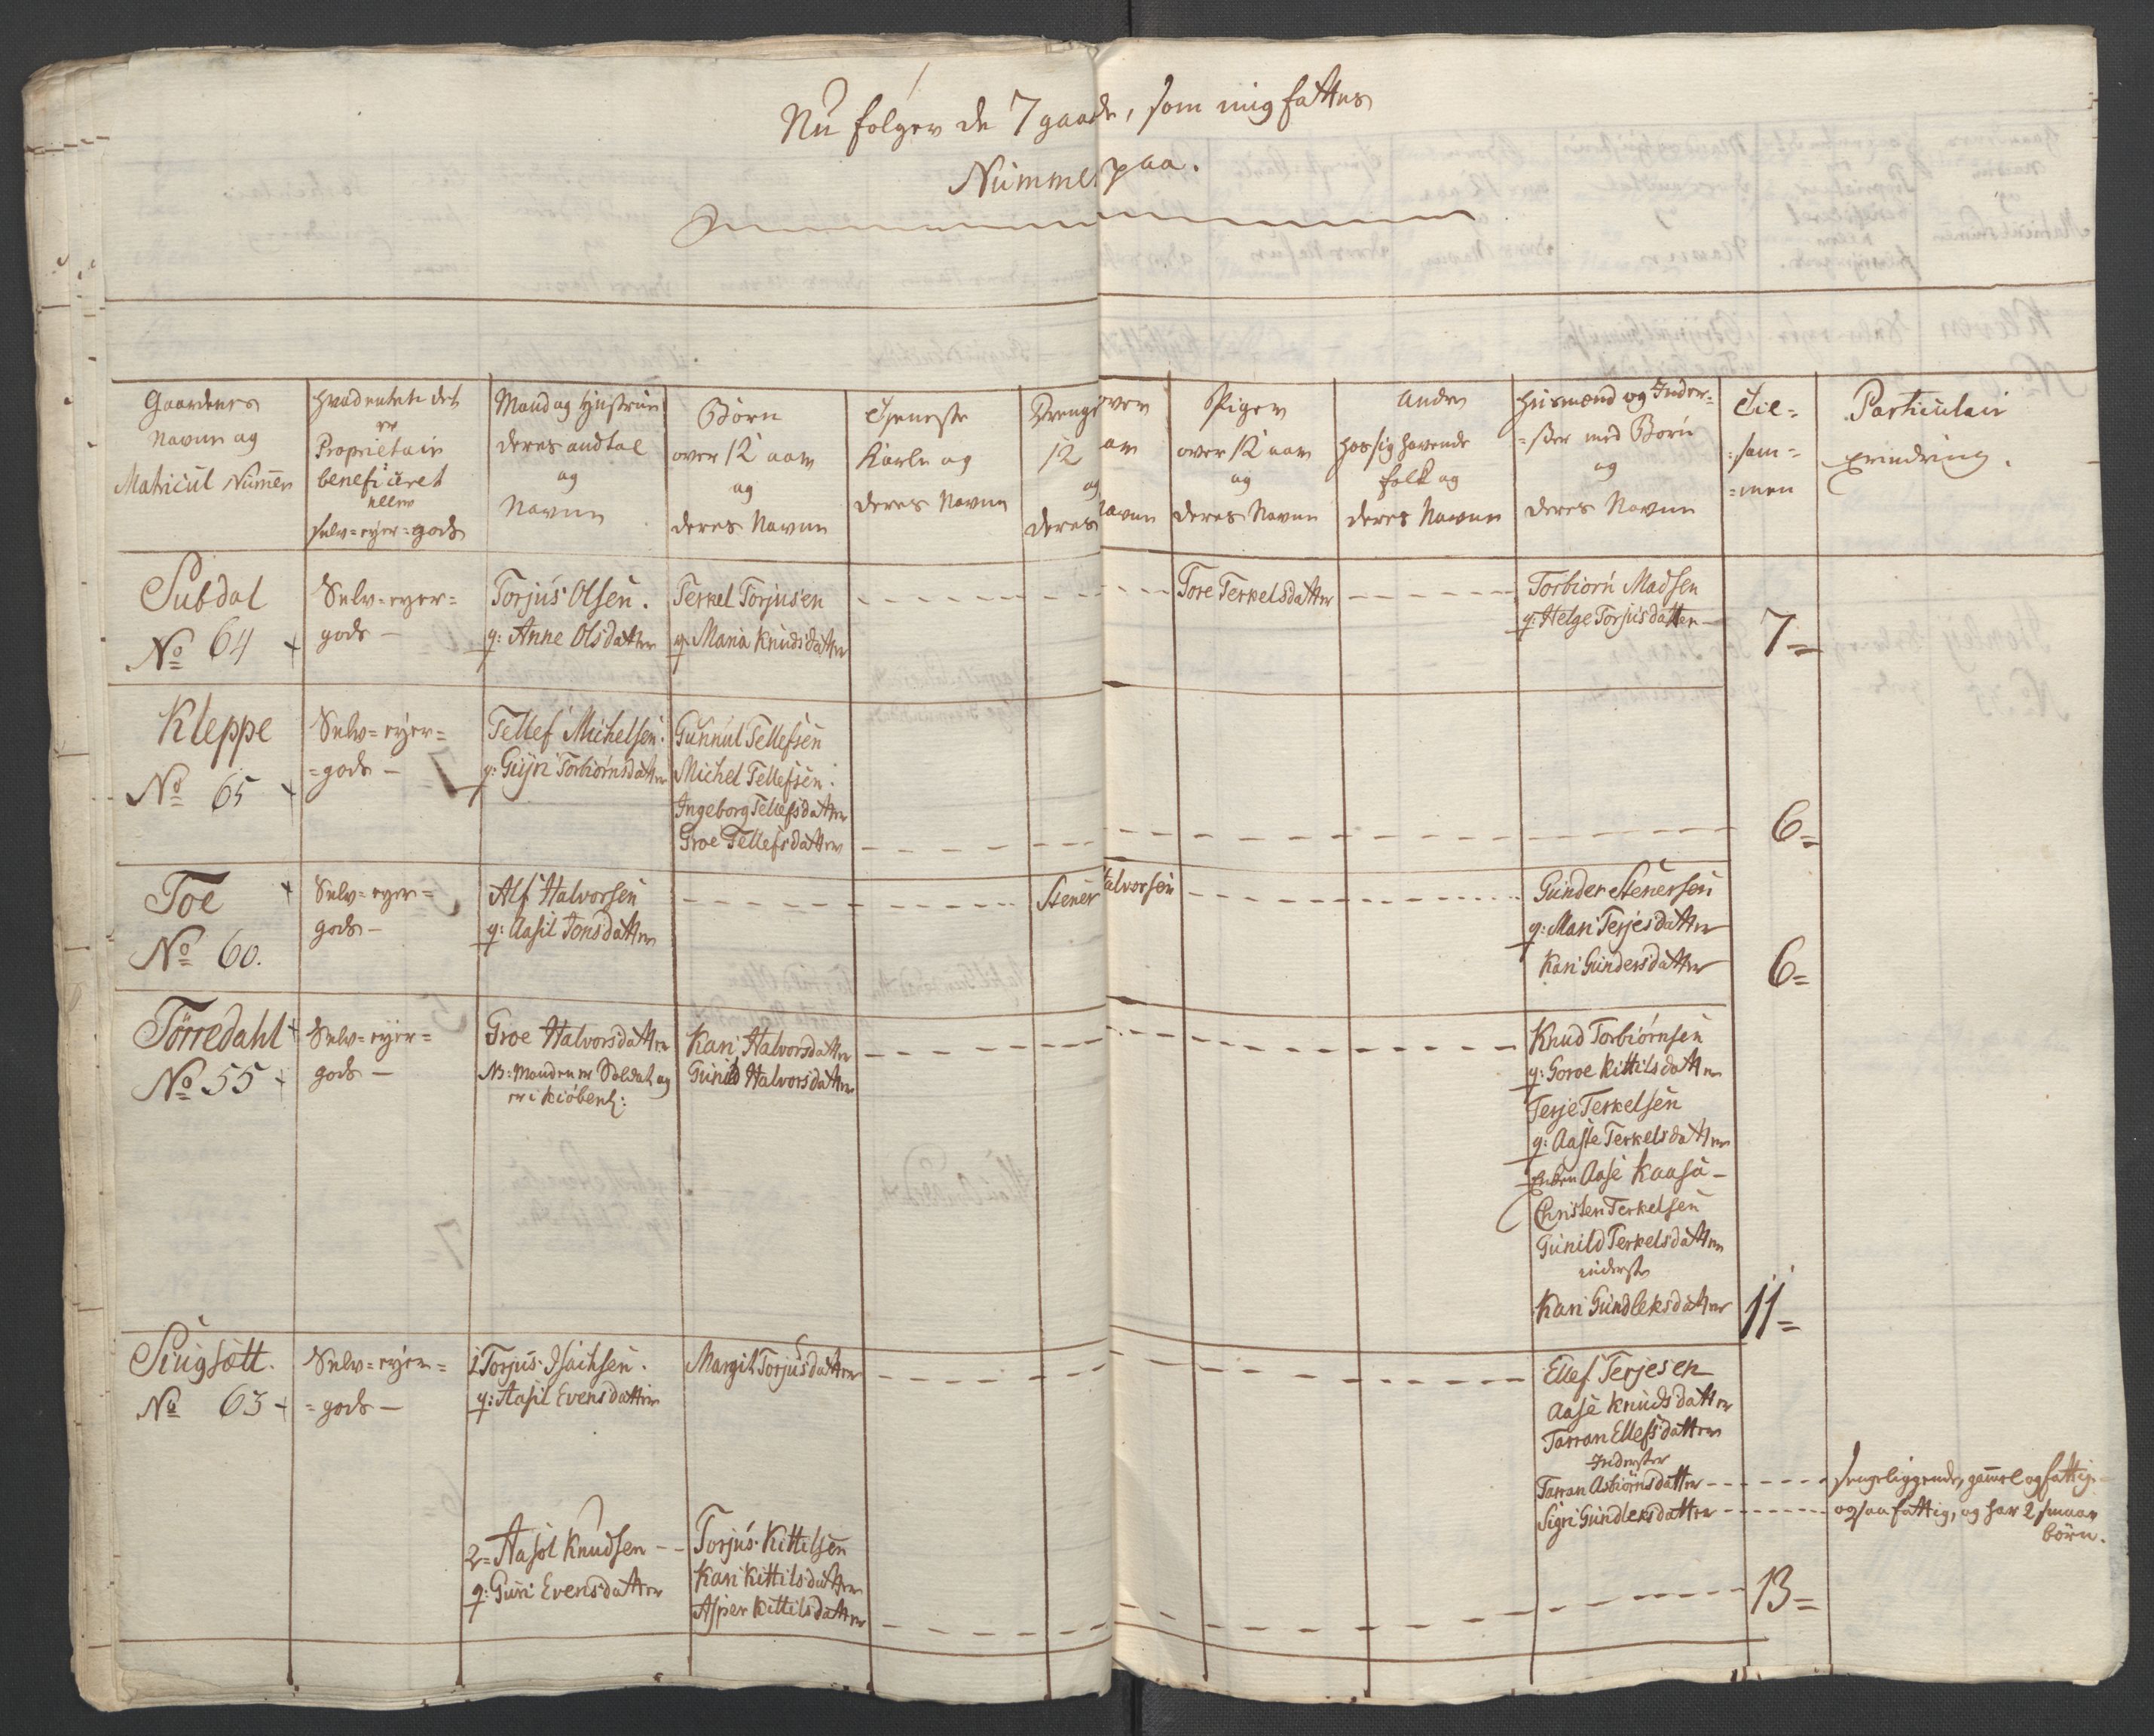 Nu følger de 7 gaarde, som mig fattes
Nummer paa.
Gaardenes
Navne og
Matricul Numer
hvad enten det
er
Proprietair
beneficeret
eller
selv=eyer=gods
Mand og Hustrue
deres andtal
og
Navne
Børn
over 12 aar
og
deres Navne
Tieneste
Karle og
deres Navne
Drenge over
12 aar
og
deres Navne
Piger
over 12 aar
og
deres Navne
Andre
hos sig havende
folk og
deres Navne
Huusmænd og Inder=
=ster med Børn
og
deres Navne
Til=
=sam=
=men
Particulair
Erindring.
Subdal
No 64
Selv=eyer=
gods —
Torjus Olsen.
q: Anne Olsdatter
Terkel Torjusen
q: Maria Knudsdatter
Tore Terkelsdatter
Torbiørn Madsen
q: Helge Torjusdatter
7=
Kleppe
No 65
Selv=eyer=
=gods —
Tellef Michelsen.
q: Gyri Torbiørnsdatter
Gunnul Tellefsen
Michel Tellefsen.
Ingeborg Tellefsdatter
Groe Tellefsdatter
6=
Toe
No 60.
Selv=eyer=
gods —
Alf Halvorsen
q: Aasil Jonsdatter
Stener Halvorsen
Gunder Stenersen
q: Mari Terjesdatter
Kari Gundersdatter
6=
Tørredahl
No 55
Selv=eyer=
gods —
Groe Halvorsdatter
NB: Manden er Soldat og
er i Kiøbenh:
Kari Halvorsdatter
Gunild Halvorsdatter
Knud Torbiørnsen
q: Goroe Kittilsdatter
Terje Terkelsen
q: Aaste Terkelsdatter
Enken Aase Kaasa —
Christen Terkelsen
Gunild Terkelsdatter
inderste
Kari Gundleksdatter
11=
Siugsøtt.
No 63
Selv=eyer=
=gods —
1 Torjus Isachsen.
q: Aasil Evensdatter
Margit Torjusdatter
Ellef Terjesen
Aase Knudsdatter
Tarran Ellefsdatter
Inderster
Tarran Asbiørnsdatter
sengeliggende, gammel og fattig.
Sigri Gundleksdatter
ogsaa fattig, og har 2 smaae
børn.
2= Aasol Knudsen
q: Guri Evensdatter
Torjus Kittilsen
Kari Kittilsdatter
Asper Kittilsdatter
13=